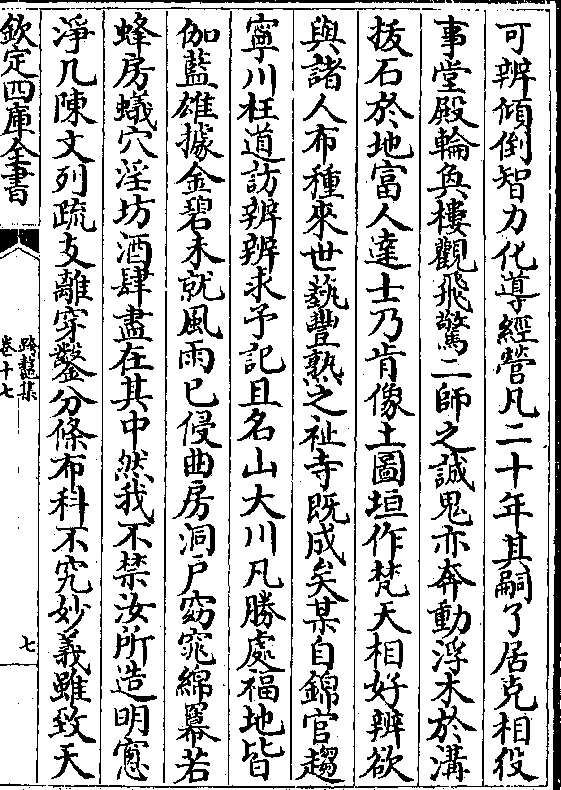 可辨傾倒智力化導經營凡二十年其嗣了居克相役
事堂殿輪奐樓觀飛驚二師之誠鬼亦奔動浮木於溝
拔石於地富人達士乃肯像土圖垣作梵天相好辨欲
與諸人布種來世蓺豐熟之祉寺既成矣某自錦官趨
寧川枉道訪辨辨求予記且名山大川凡勝處福地皆
伽藍雄據金碧未就風雨已侵曲房洞戶窈窕綿羃若
蜂房蟻穴淫坊酒肆盡在其中然我不禁汝所造明窻
淨几陳文列疏支離穿鑿分條布科不究妙義雖致天
欽定四庫全書
跨鼇集
卷十七
七